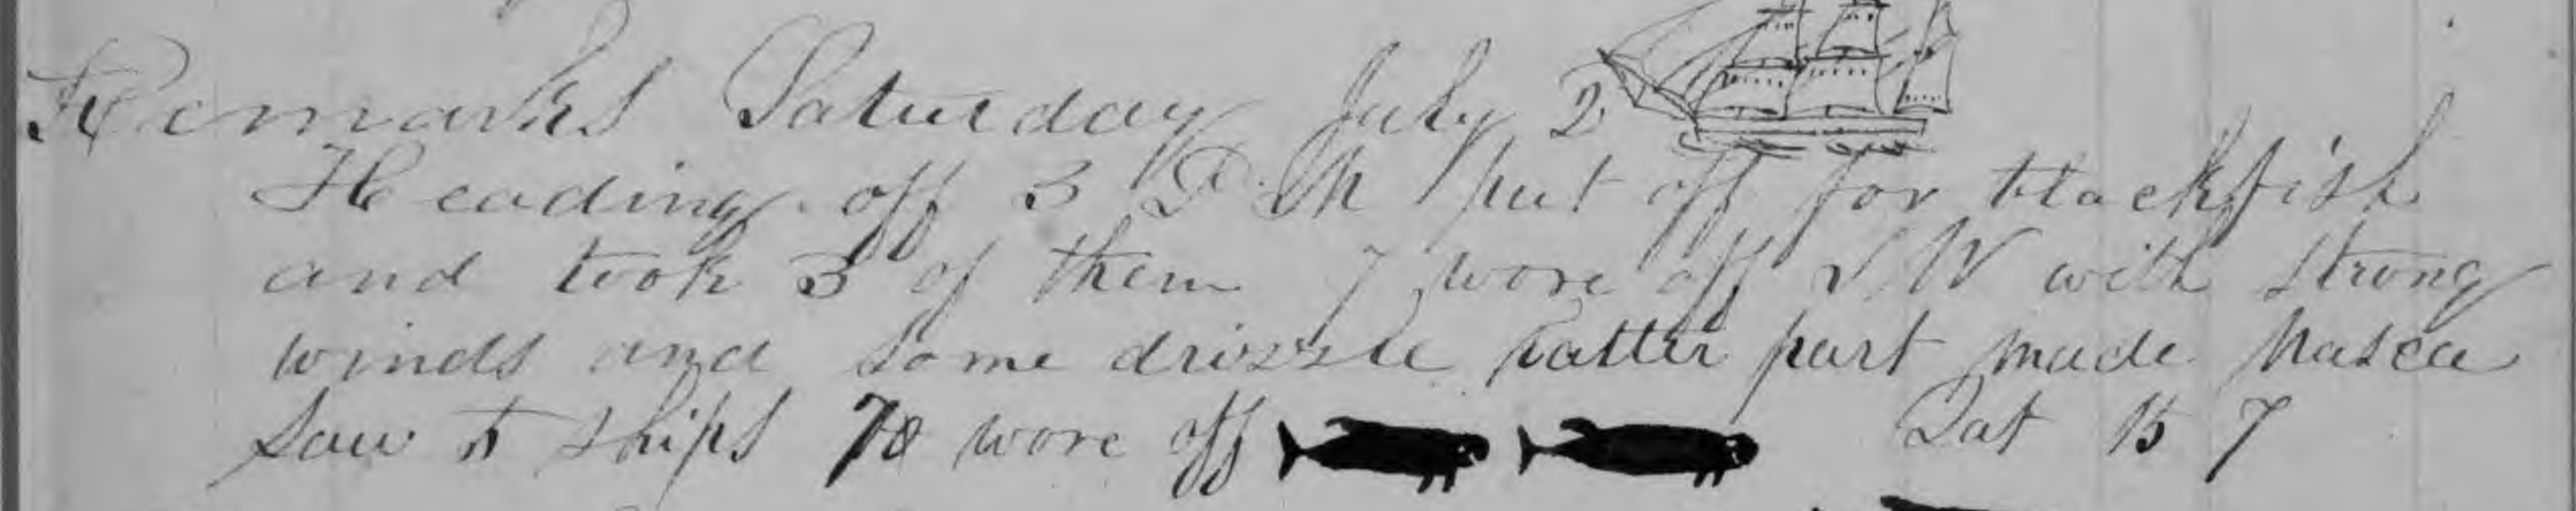 Remarks Saturday July 2
Heading off 3 P.M put off for blackfish
and took 3 of them 7 wore off S W with strong
winds and some drizzle latter part made Nasca
Saw 5 ships 10 wore off Lat 15 7